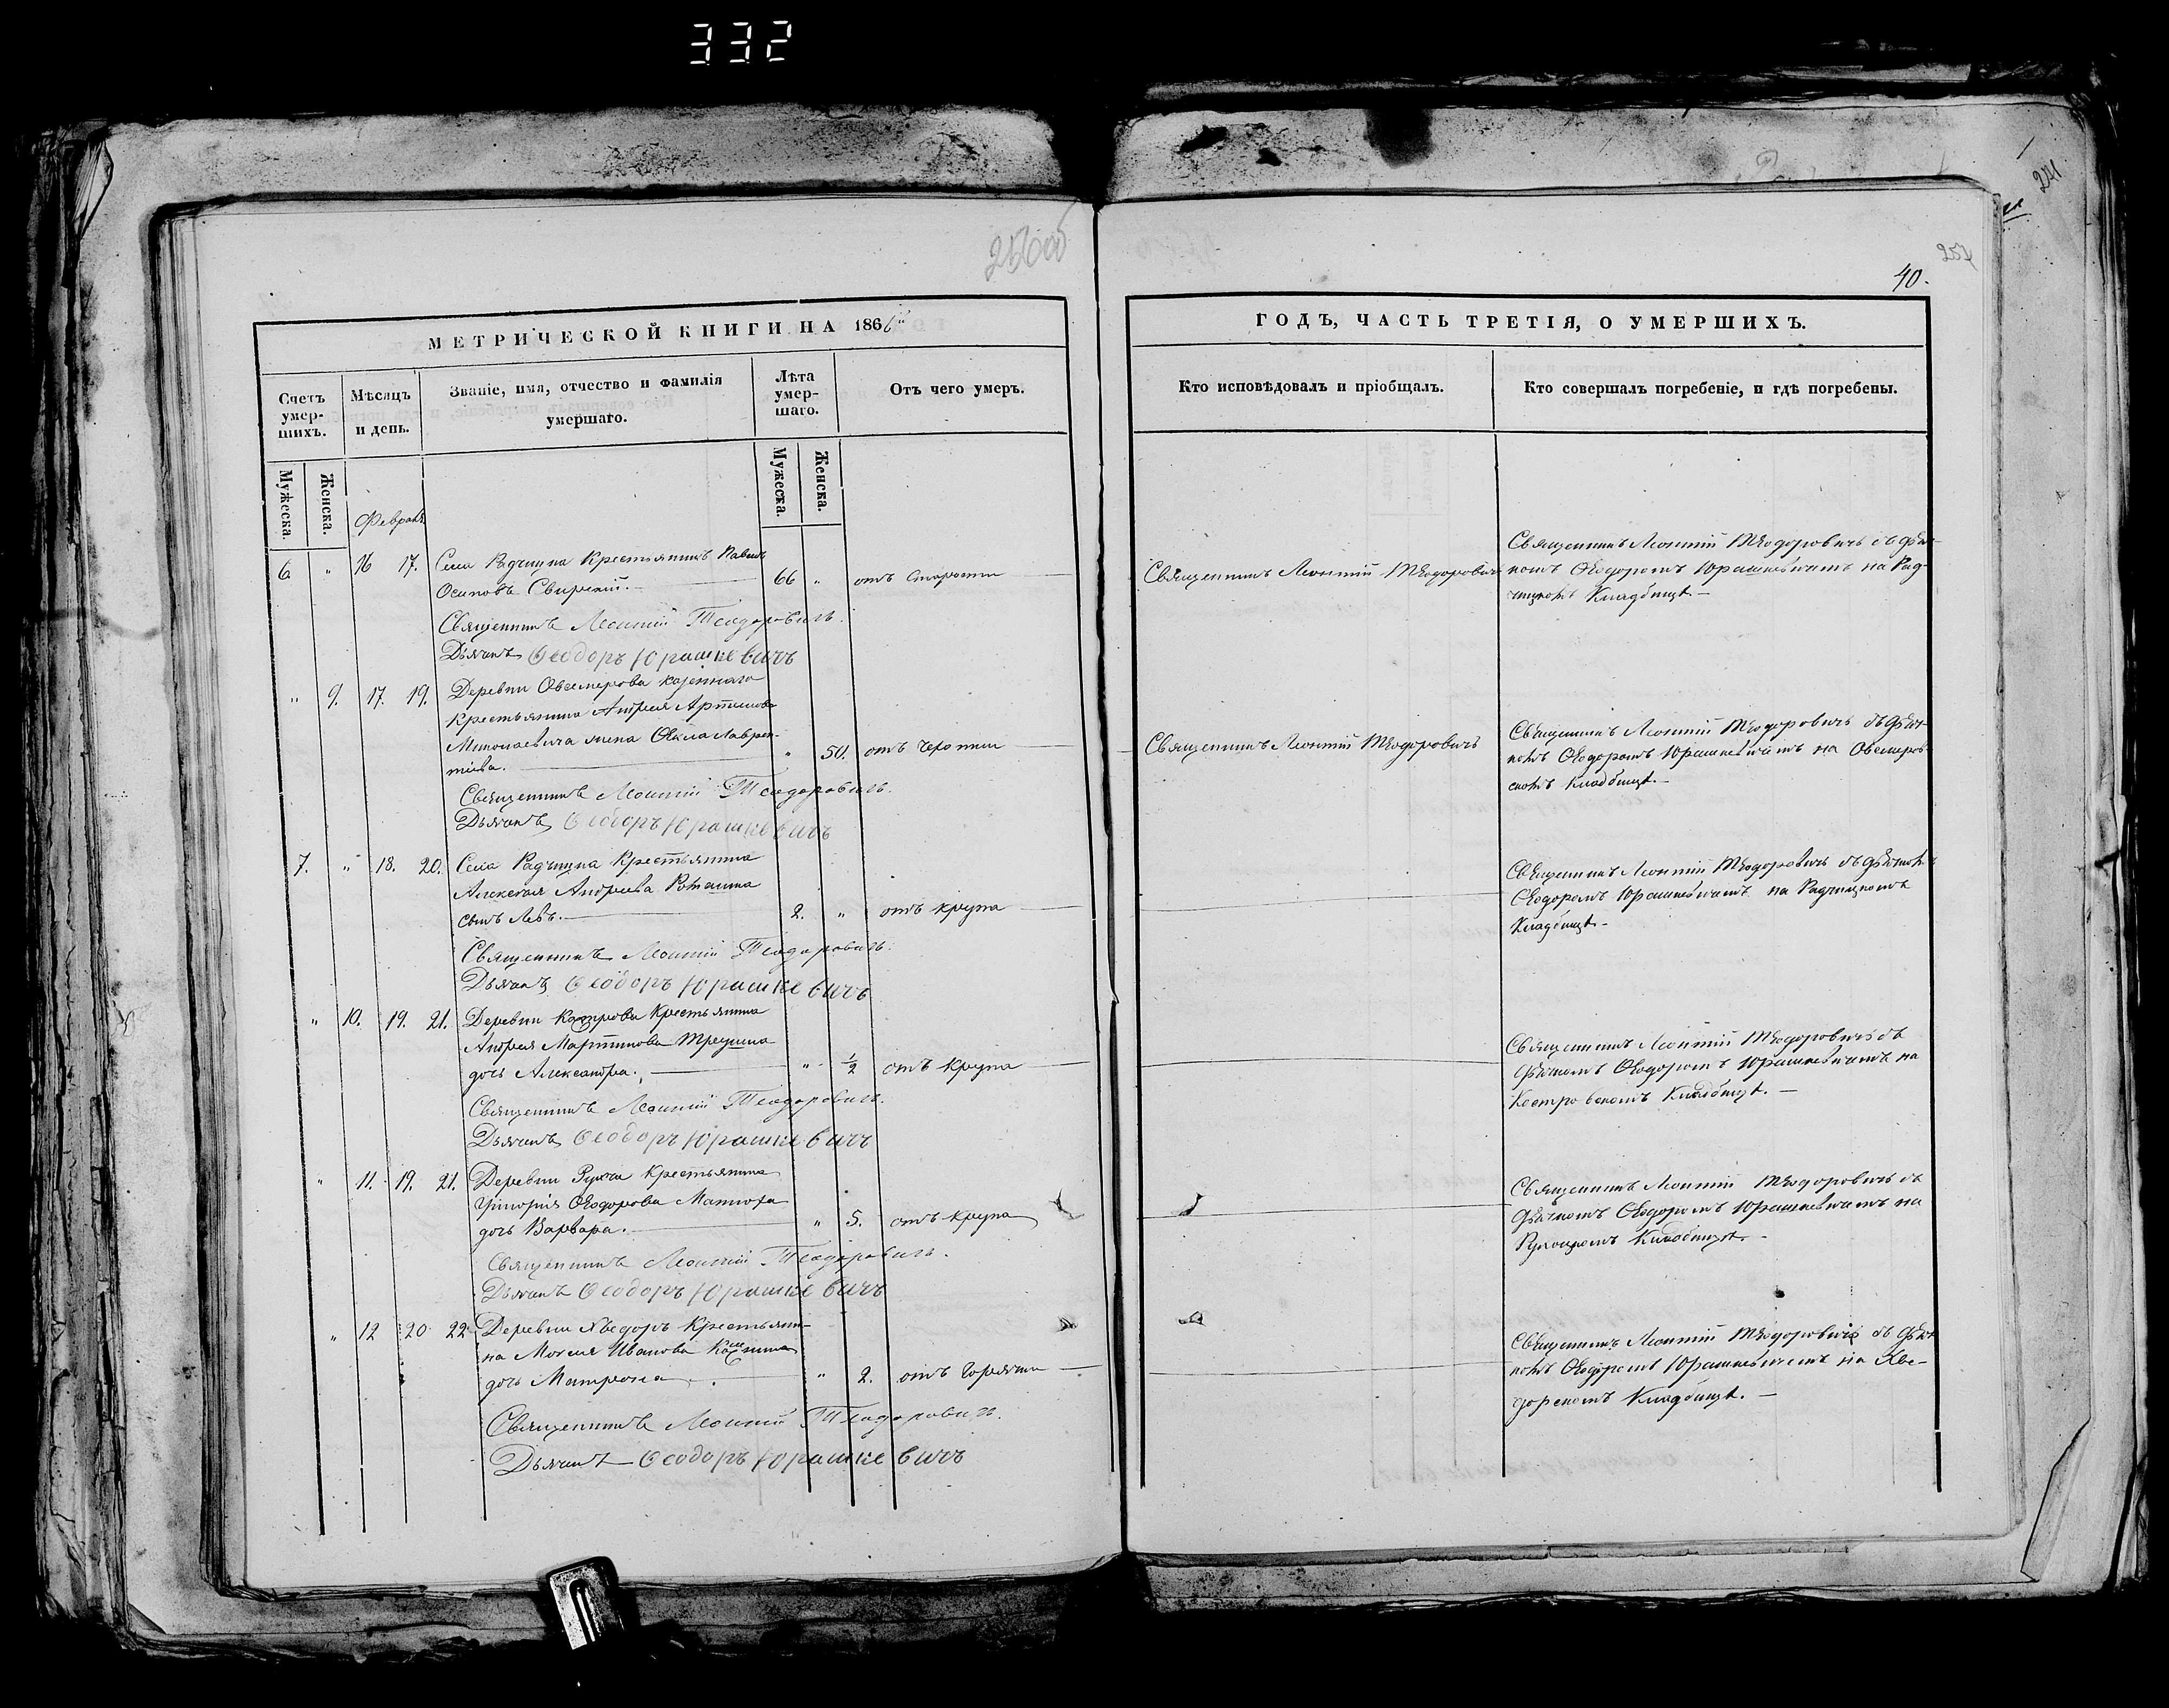 332
256об
241
257
40.
МЕТРИЧЕСКОЙ КНИГИ НА 1866й
Счетъ умер-шихъ.
Мѣсяцъ и день.
Званіе, имя, отчество и фамилія умершаго.
Лѣта умер-шаго.
Отъ чего умеръ.
Мужеска.
Женска.
Мужеска.
Женска.
Февраля
6. " 16 17. Села Радчицка Крестьянинъ Павелъ
Осиповъ Свирский. 66 " отъ старости
Священникъ Леонтий Теодоровичъ.
Дьячекъ Ѳеодоръ Юрашкевичъ
" 9. 17. 19. Деревни Овсемирова казеннаго
крестьянина Андрея Артимова
Миколаевича жена Ѳекла Лаврен-
тиева. " 50. отъ чахотки
Священникъ Леонтий Теодоровичъ.
Дьячекъ Ѳеодоръ Юрашкевичъ
7. " 18. 20. Села Радчицка Крестьянина
Алексея Андреева
сынъ Левъ. 2. " отъ крупа
Священникъ Леонтий Теодоровичъ.
Дьячекъ Ѳеодоръ Юрашкевичъ
" 10. 19. 21. Деревни Крестьянина
Андрея Мартинова
дочь Александра. " 1/2 отъ крупа
Священникъ Леонтий Теодоровичъ.
Дьячекъ Ѳеодоръ Юрашкевичъ
" 11. 19. 21. Деревни Крестьянина
Григорія Ѳеодорова
дочь Варвара. " 5. отъ крупа
Священникъ Леонтий Теодоровичъ.
Дьячекъ Ѳеодоръ Юрашкевичъ
" 12 20 22 Деревни Хведоръ Крестьяни-
на Моисея Иванова
дочь Матрона " 2. отъ горячки
Священникъ Леонтий Теодоровичъ.
Дьячекъ Ѳеодоръ Юрашкевичъ
ГОДЪ, ЧАСТЬ ТРЕТІЯ, О УМЕРШИХЪ.
Кто исповѣдовалъ и пріобщалъ.
Кто совершалъ погребеніе, и гдѣ погребены.
Священникъ Леонтий Теодоровичъ
Священникъ Леонтий Теодоровичъ съ дьяч-
комъ Ѳеодоромъ Юрашкевичемъ на Рад-
чицкомъ Кладбищѣ.
Священникъ Леонтий Теодоровичъ
Священникъ Леонтий Теодоровичъ съ дьяч-
комъ Ѳеодоромъ Юрашкевичемъ на Овсемиров-
скомъ Кладбищѣ.
Священникъ Леонтий Теодоровичъ съ дьячкомъ
Ѳеодоромъ Юрашкевичемъ на Радчицкомъ
Кладбищѣ.
Священникъ Леонтий Теодоровичъ съ
дьячкомъ Ѳеодоромъ Юрашкевичемъ на
Костровскомъ Кладбищѣ.
Священникъ Леонтий Теодоровичъ съ
дьячкомъ Ѳеодоромъ Юрашкевичемъ на
Кладбищѣ.
Священникъ Леонтий Теодоровичъ съ дьяч-
комъ Ѳеодоромъ Юрашкевичемъ на Хве-
дорскомъ Кладбищѣ.